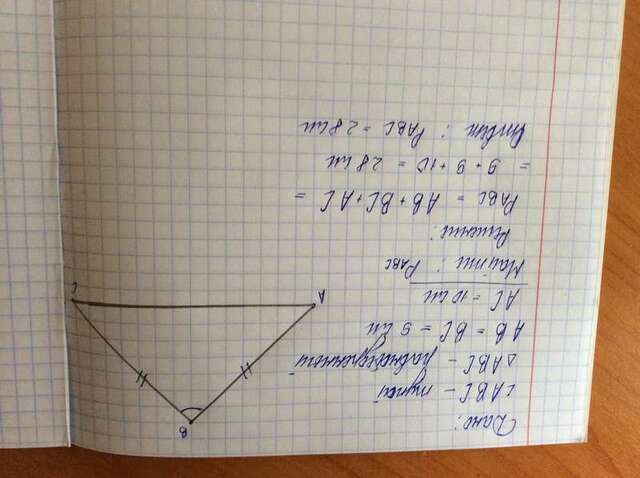 Дано:
∠ABC - тупой
△ABC - равнобедренный
AB = BC = 9 см
AC = 10 см
Найти: P_ABC
Решение:
P_ABC = AB + BC + AC =
= 9 + 9 + 10 = 28 см
Ответ: P_ABC = 28 см
B
A
C